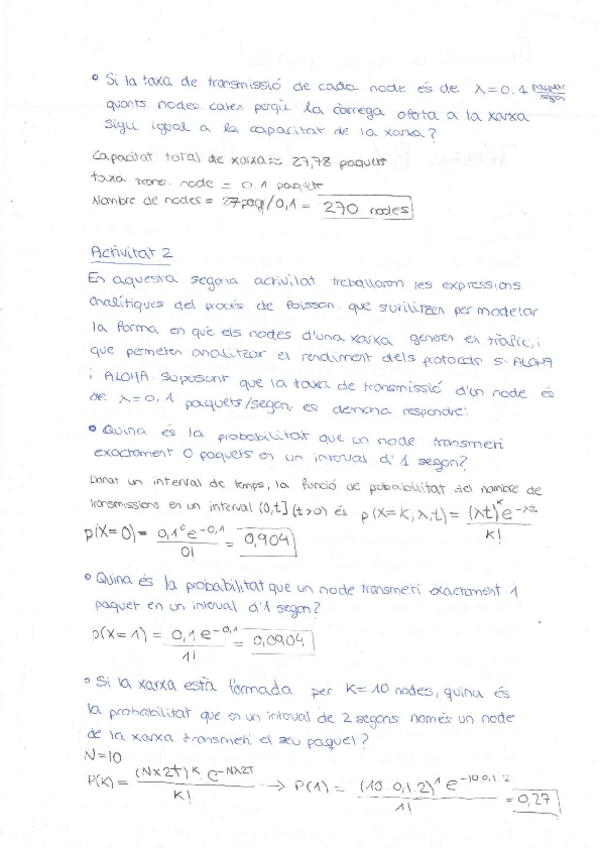 • Si la taxa de transmissió de cada node és de λ=0.1 paquets/segon
quants nodes calen perquè la càrrega oferta a la xarxa
sigui igual a la capacitat de la xarxa?
Capacitat total de xarxa ≈ 27,78 paquets
taxa trans. node = 0.1 paquets
Nombre de nodes = 27paq/0,1 = 270 nodes
Activitat 2
En aquesta segona activitat treballarem les expressions
analítiques del procés de Poisson que s'utilitzen per modelar
la forma en què els nodes d'una xarxa generen el tràfic, i
que permeten analitzar el rendiment dels protocols S-ALOHA
i ALOHA. Suposant que la taxa de transmissió d'un node és
de λ=0,1 paquets/segon, es demana respondre:
• Quina és la probabilitat que un node transmeti
exactament 0 paquets en un interval d'1 segon?
Donat un interval de temps, la funció de probabilitat del nombre de
transmissions en un interval (0,t] (t>0) és p(X=K,λ,t) = (λt)^K e^-λt / K!
p(X=0) = 0,1^0 e^-0,1 / 0! = 0,904
• Quina és la probabilitat que un node transmeti exactament 1
paquet en un interval d'1 segon?
p(X=1) = 0,1 e^-0,1 / 1! = 0,0904
• Si la xarxa està formada per K=10 nodes, quina és
la probabilitat que en un interval de 2 segons només un node
de la xarxa transmeti el seu paquet?
N=10
P(K) = (Nλ2T)^K e^-Nλ2T / K! → P(1) = (10·0,1·2)^1 e^-10·0,1·2 / 1! = 0,27